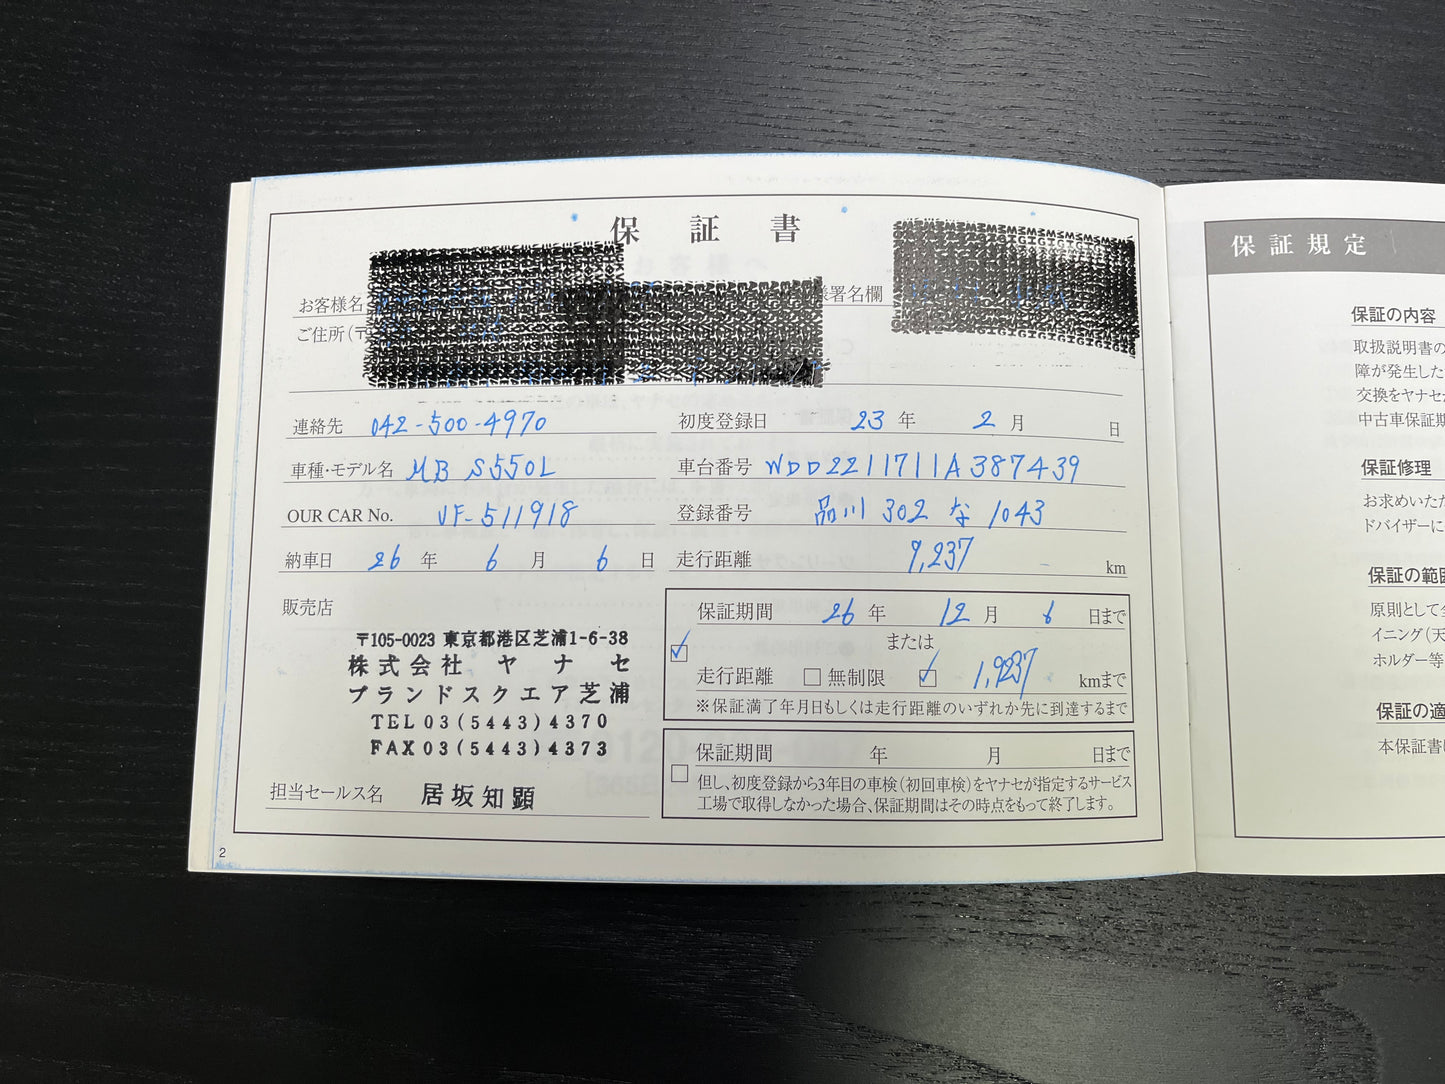 保証書
お客様名
署名欄
ご住所(〒
連絡先 042-500-4970
初度登録日 23 年 2 月 日
車種・モデル名 MB S550L
車台番号 WDD2211711A387439
OUR CAR No. VF-511918
登録番号 品川 302 な 1043
納車日 26 年 6 月 6 日
走行距離 9,237 km
販売店
〒105-0023 東京都港区芝浦1-6-38
株式会社 ヤナセ
ブランドスクエア芝浦
TEL 03(5443)4370
FAX 03(5443)4373
担当セールス名 居坂知顕
保証期間 26 年 12 月 6 日まで
または
走行距離 無制限 kmまで
※保証満了年月日もしくは走行距離のいずれか先に到達するまで
保証期間 年 月 日まで
但し、初度登録から3年目の車検(初回車検)をヤナセが指定するサービス
工場で取得しなかった場合、保証期間はその時点をもって終了します。
2
保証規定
保証の内容
取扱説明書の
障が発生した
交換をヤナセ
中古車保証期
保証修理
お求めいた
ドバイザーに
保証の範囲
原則として
イニング(天
ホルダー等
保証の適
本保証書